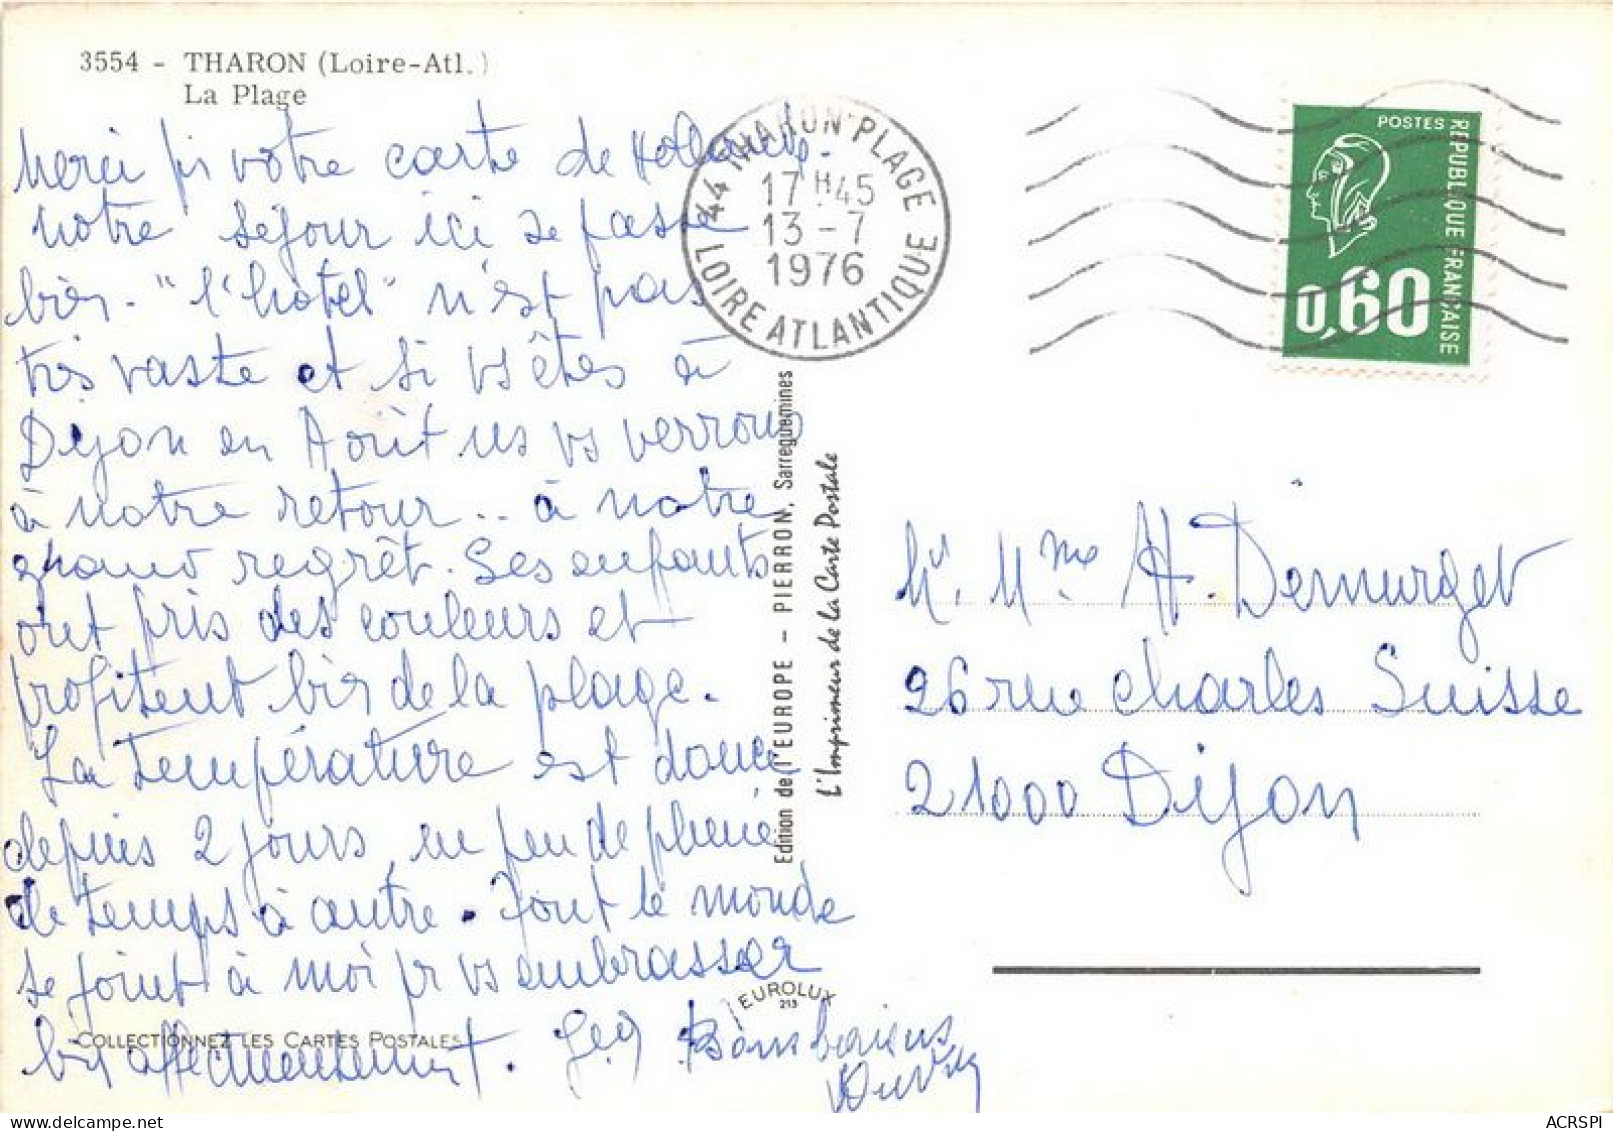 3554 - THARON (Loire-Atl.)
La Plage
Merci pr votre carte de Hollande.
notre séjour ici se passe
bien. "l'hôtel" n'est pas
très vaste et si vs êtes à
Dijon en Août ns vs verrons
à notre retour.. à notre
grand regrêt. Les enfants
ont pris des couleurs et
profitent bien de la plage.
La température est douce
depuis 2 jours, un peu de pluie
de temps à autre. Tout le monde
se joint à moi pr vs embrasser
bien affectueusement.
COLLECTIONNEZ LES CARTES POSTALES
EUROLUX
213
Edition de l'EUROPE - PIERRON, Sarreguemines
L'Imprimeur de la Carte Postale
44 THARON PLAGE
17H45
13-7
1976
LOIRE ATLANTIQUE
POSTES
REPUBLIQUE FRANÇAISE
0,60
Mr. Mme H. Demurget
26 rue Charles Suisse
21000 Dijon
ACRSPI